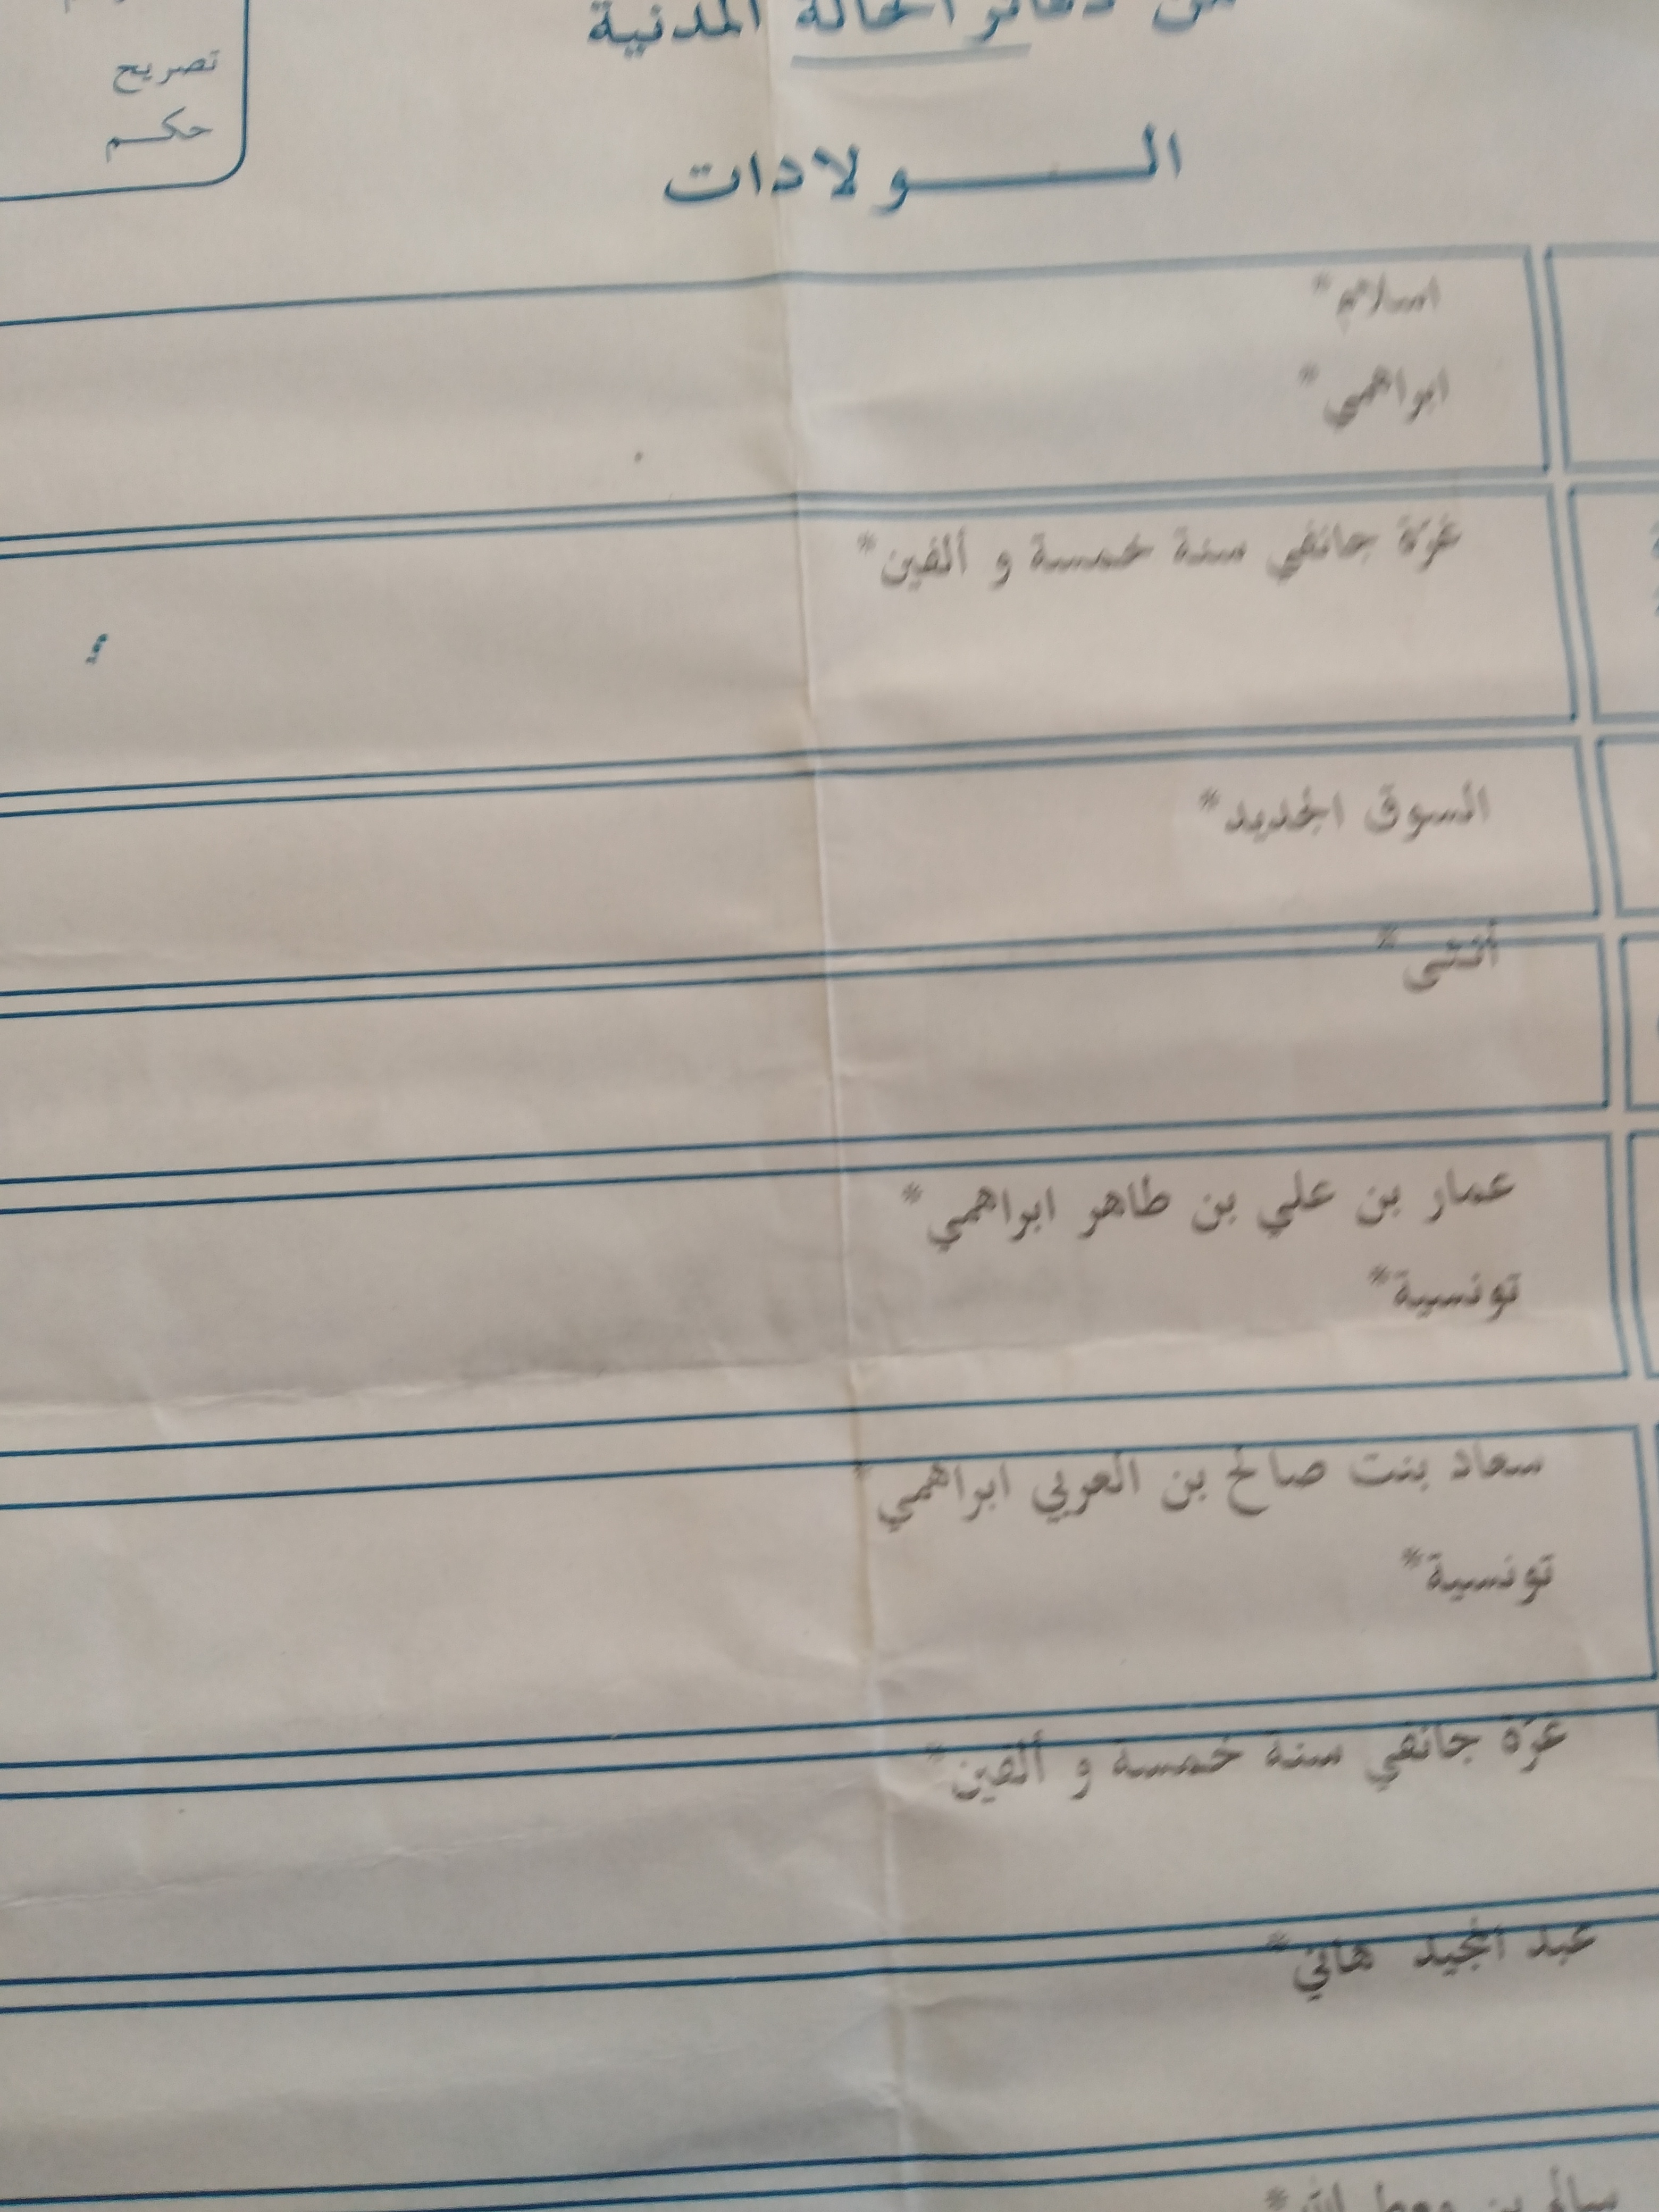 من دفاتر الحالة المدنية
تصريح
حكم
الولادات
اسلام*
ابراهمي*
غرّة جانفي سنة خمسة و ألفين*
السوق الجديد*
أنثى*
عمار بن علي بن طاهر ابراهمي*
تونسية*
سعاد بنت صالح بن العربي ابراهمي*
تونسية*
غرّة جانفي سنة خمسة و ألفين*
عبد المجيد هاني*